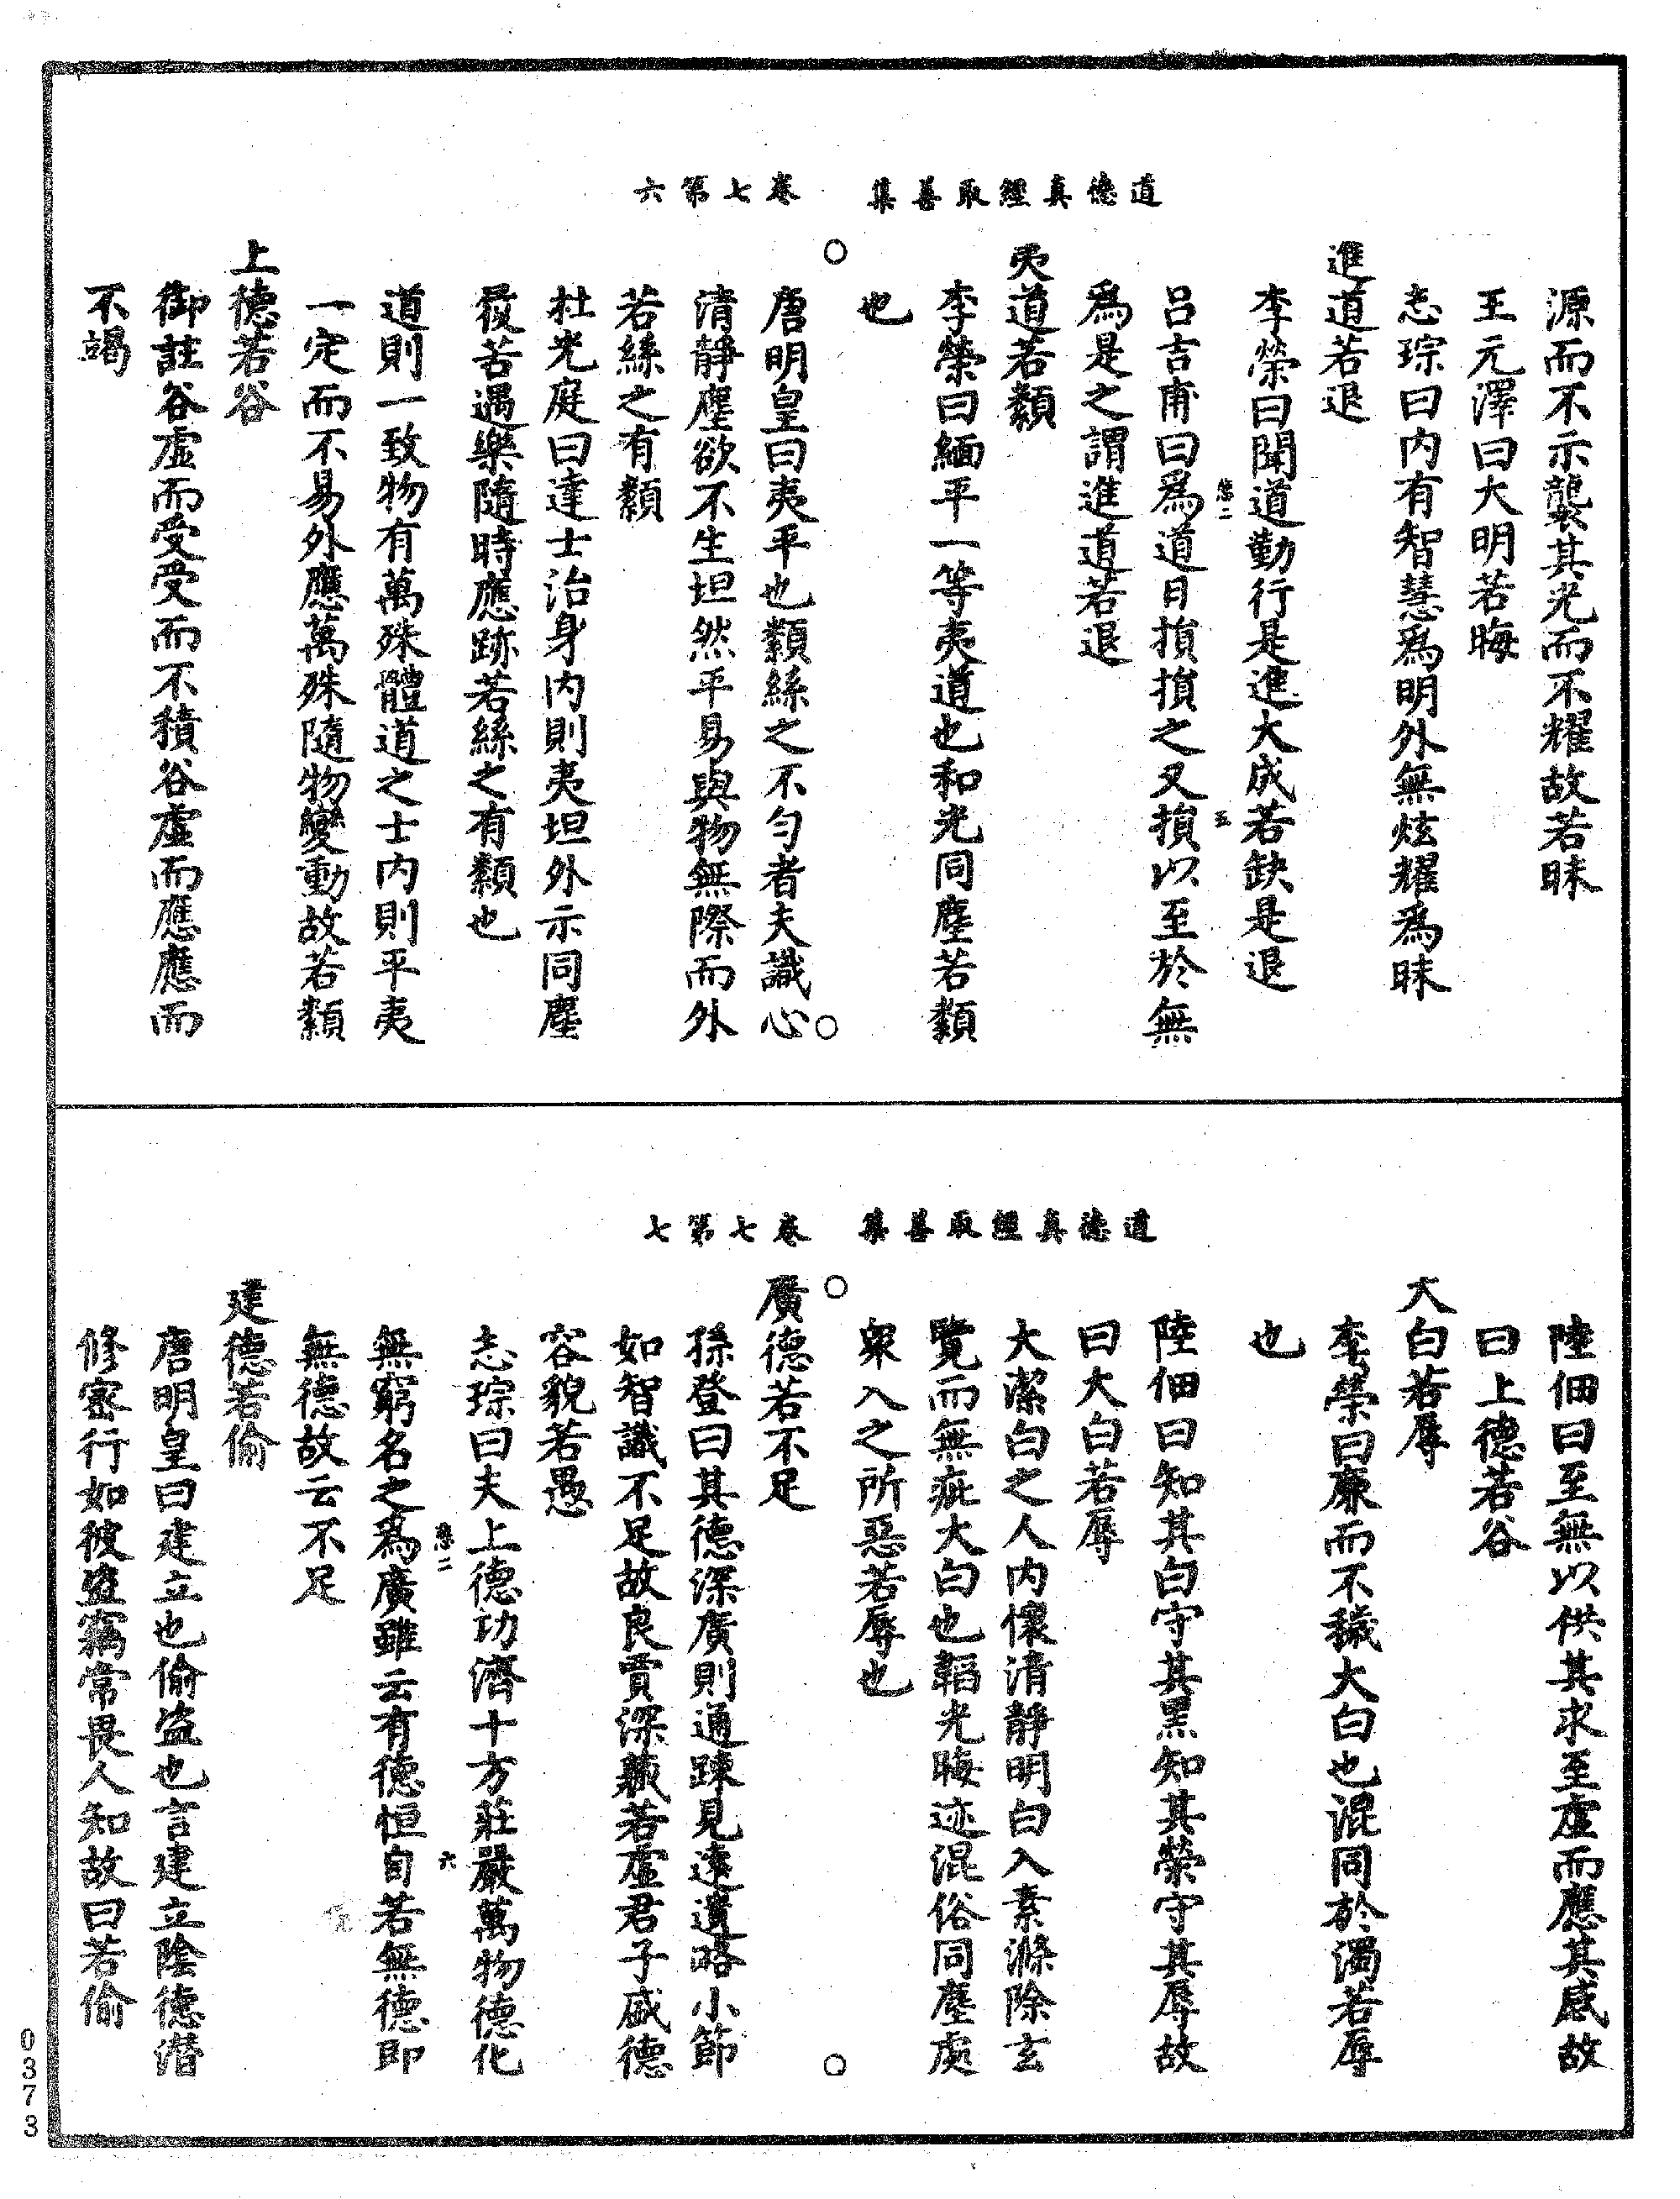 道德真經取善集　卷七第六
源而不示襲其光而不耀故若昧
王元澤曰大明若晦
志琮曰内有智慧爲明外無炫耀爲昧
進道若退
李榮曰聞道勤行是進大成若缺是退
悲二　五
吕吉甫曰爲道日損損之又損以至於無
爲是之謂進道若退
夷道若纇
李榮曰緬平一等夷道也和光同塵若纇
也
唐明皇曰夷平也纇絲之不勻者夫識心
清靜塵欲不生坦然平易與物無際而外
若絲之有纇
杜光庭曰達士治身内則夷坦外示同塵
役苦遇樂隨時應跡若絲之有纇也
道則一致物有萬殊體道之士内則平夷
一定而不易外應萬殊隨物變動故若纇
上德若谷
御註谷虛而受受而不積谷虛而應應而
不竭
道德真經取善集　卷七第七
陸佃曰至無以供其求至虛而應其感故
曰上德若谷
大白若辱
李榮曰廉而不穢大白也混同於濁若辱
也
陸佃曰知其白守其黑知其榮守其辱故
曰大白若辱
大潔白之人内懷清靜明白入素滌除玄
覽而無疵大白也韜光晦迹混俗同塵處
衆人之所惡若辱也
廣德若不足
孫登曰其德深廣則通疎見遠遺略小節
如智識不足故良賈深藏若虛君子盛德
容貌若愚
志琮曰夫上德功濟十方莊嚴萬物德化
悲二　六
無窮名之爲廣雖云有德恒自若無德即
無德故云不足
建德若偷
唐明皇曰建立也偷盗也言建立陰德潛
修密行如彼盗竊常畏人知故曰若偷
0373